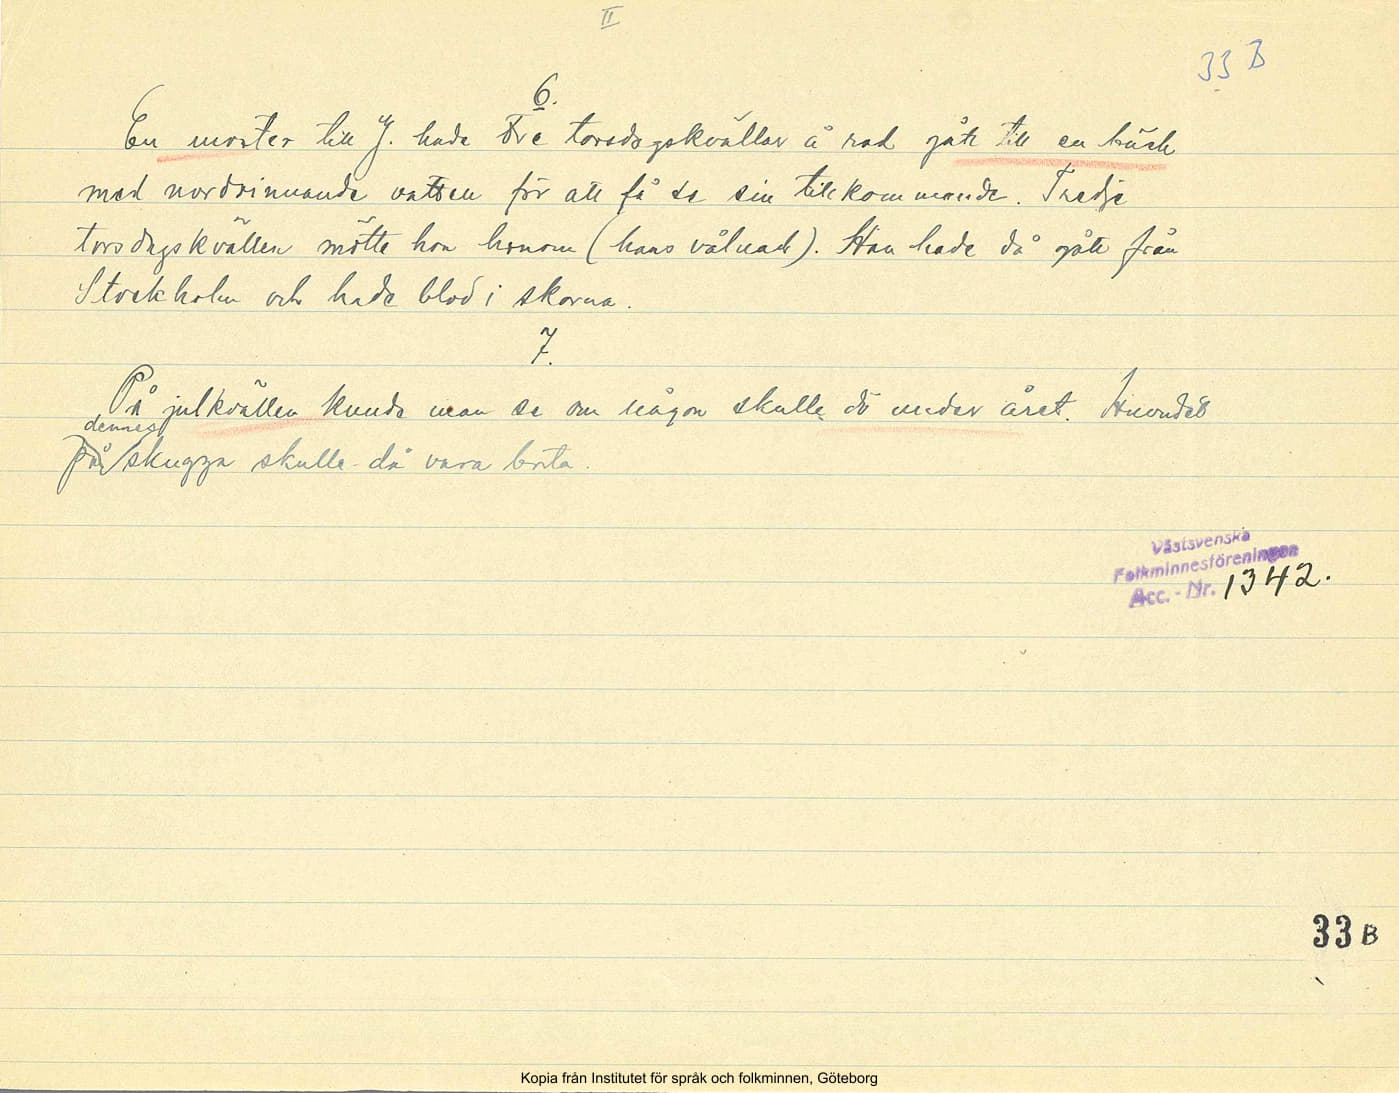 II
33 B
6.
En moster till J. hade tre torsdagskvällar å rad gått till en bäck
med nordrinnande vatten för att få se sin tillkommande. Tredje
torsdagskvällen mötte hon honom (hans vålnad). Han hade då gått från
Stockholm och hade blod i skorna.
7.
På julkvällen kunde man se om någon skulle dö under året. Huvudet
dennes
på skugga skulle då vara borta.
Västsvenska
Folkminnesföreningen
Acc.-Nr. 1342.
33 B
Kopia från Institutet för språk och folkminnen, Göteborg